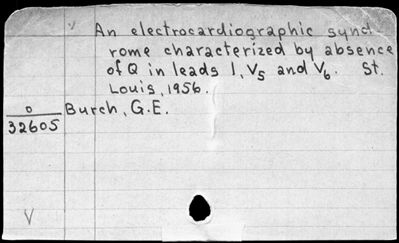 An electrocardiographic synd
rome characterized by absence
of Q in leads 1, V5 and V6. St.
Louis, 1956.
0 Burch, G.E.
32605
V